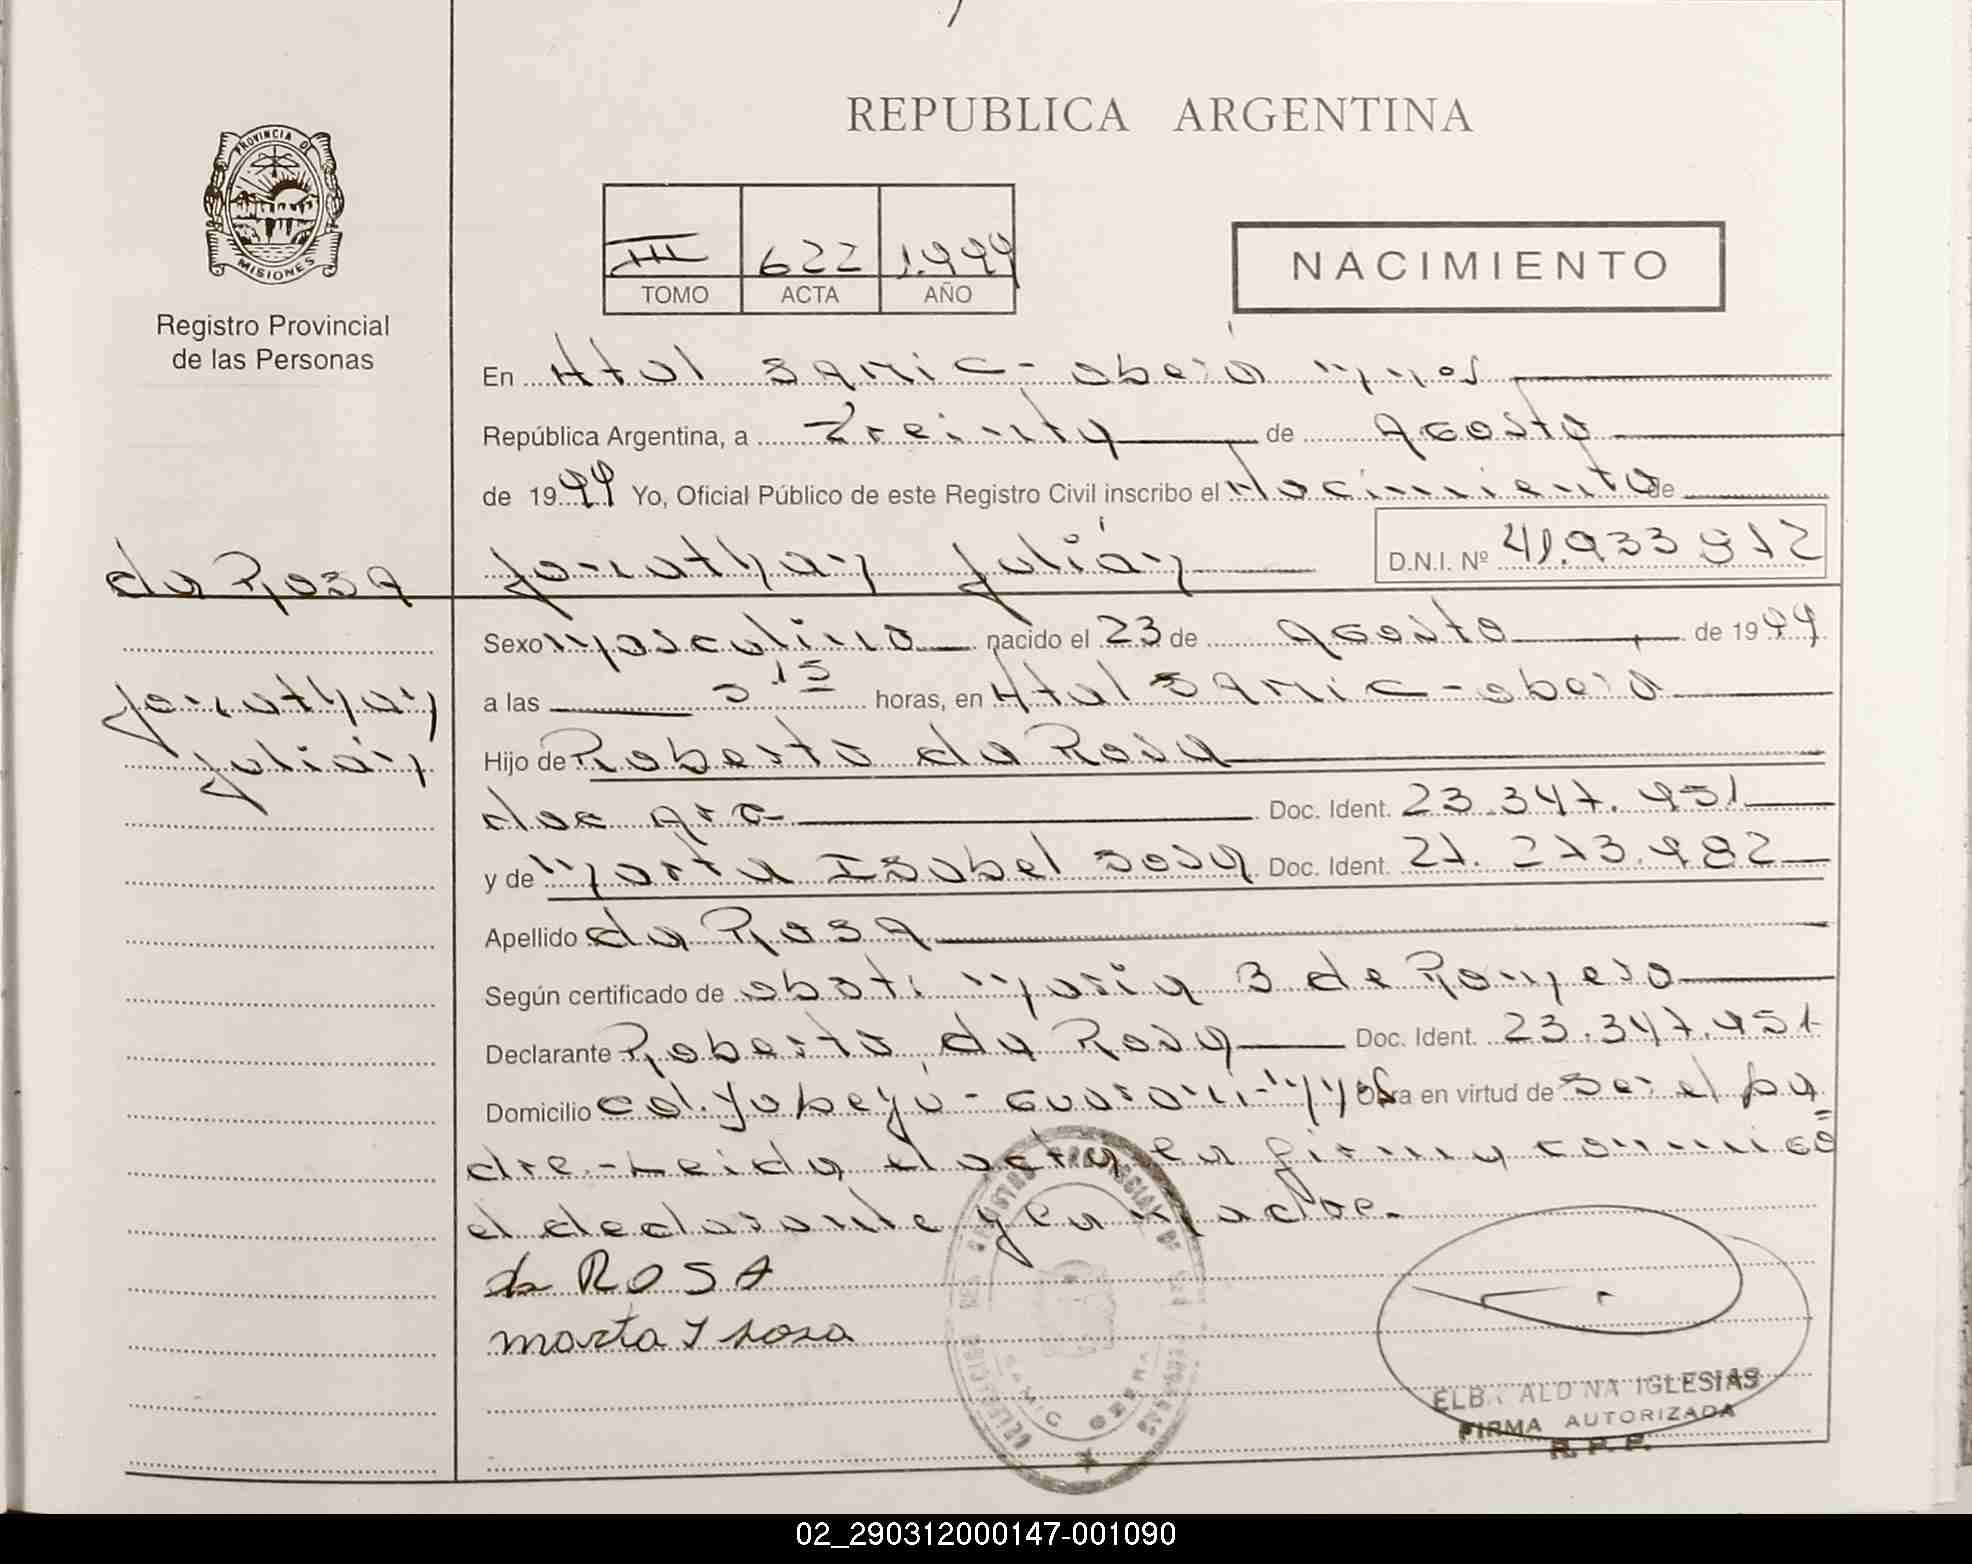 REPUBLICA ARGENTINA
PROVINCIA D
MISIONES
Registro Provincial
de las Personas
III 622 1.999
TOMO ACTA AÑO
NACIMIENTO
En Htal SAMIC - oberá Mnes
República Argentina, a Treinta de Agosto
de 1999 Yo, Oficial Público de este Registro Civil inscribo el Nacimiento de
da Rosa Jonathan Julián D.N.I. Nº 41.933 912
Sexo Masculino nacido el 23 de Agosto de 1999
Jonathan
Julián
a las 5 15 horas, en Htal SAMIC - oberá
Hijo de Roberto da Rosa
doc Doc. Ident. 23.347.951
y de Marta Isabel Sosa Doc. Ident. 21.273.982
Apellido da Rosa
Según certificado de obst: María B de Romero
Declarante Roberto da Rosa Doc. Ident. 23.347.951
Domicilio Col. Yabeyú - Guaraní - Obra en virtud de ser el pa
dre. - Leída el acta la firma conmigo
el declarante y la madre.
da ROSA
marta I sosa
ELBA ALDINA IGLESIAS
FIRMA AUTORIZADA
R. P. P.
02_290312000147-001090